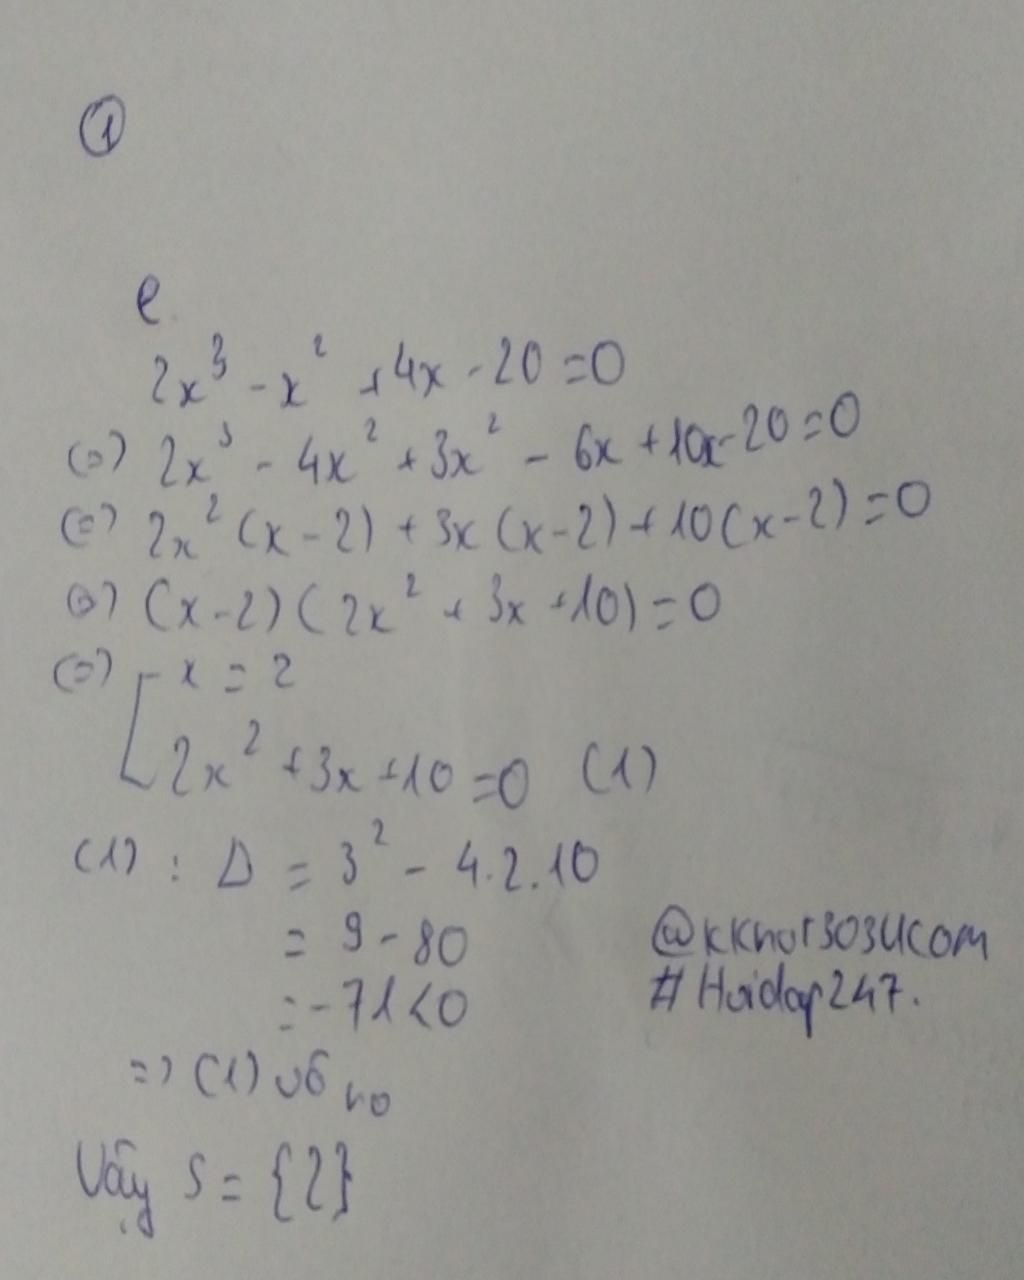 ①
e.
2x³ - x² + 4x - 20 = 0
(=) 2x³ - 4x² + 3x² - 6x + 10x - 20 = 0
(=) 2x² (x - 2) + 3x (x - 2) + 10 (x - 2) = 0
(=) (x - 2) ( 2x² + 3x + 10) = 0
(=) [ x = 2
2x² + 3x + 10 = 0 (1)
(1) : Δ = 3² - 4.2.10
= 9 - 80
= - 71 < 0
=> (1) vô no
Vậy S = {2}
#Hoidap247.